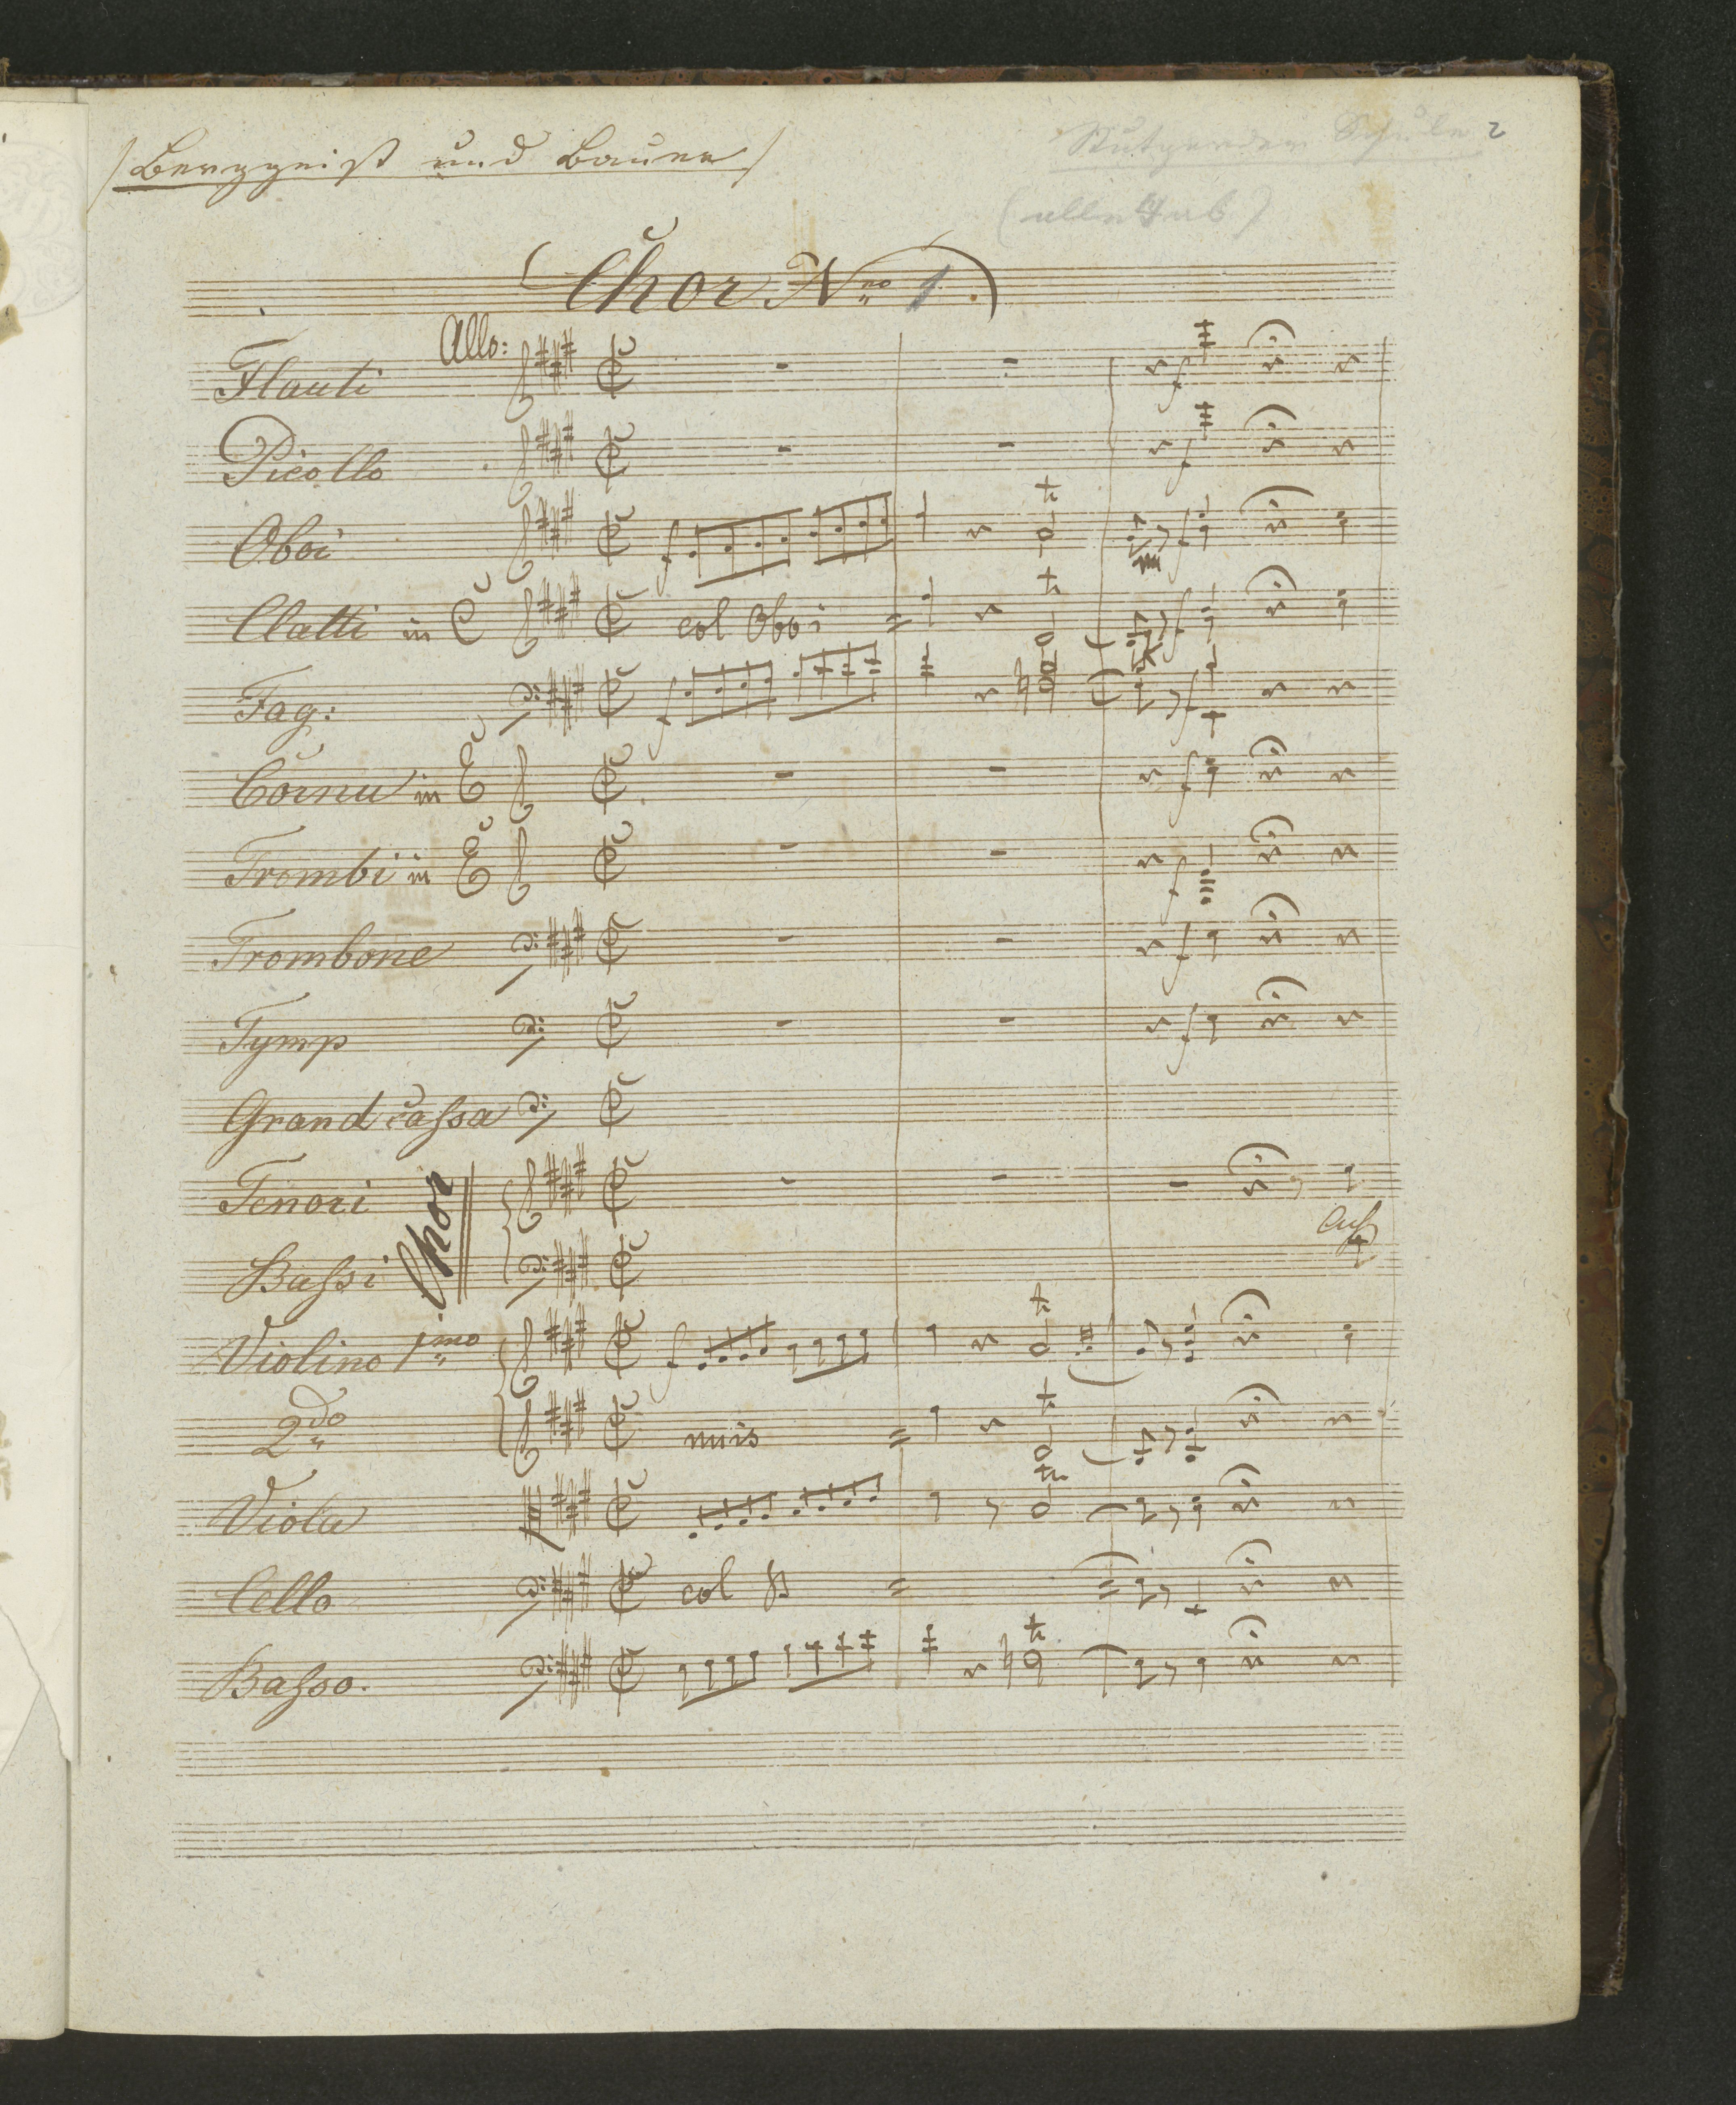 / Berggeist und Bauer /
2
Chor Nro 1.
Allo:
Flauti
Picollo
Oboi
Clatti in C
col Oboi
Fag:
Cornu in E
Trombi in E
Trombone
Tymp
Grand cassa
Tenori
Chor
Auf
Bassi
Violino 1mo
2do
unis
Viola
Cello
col B
Basso.